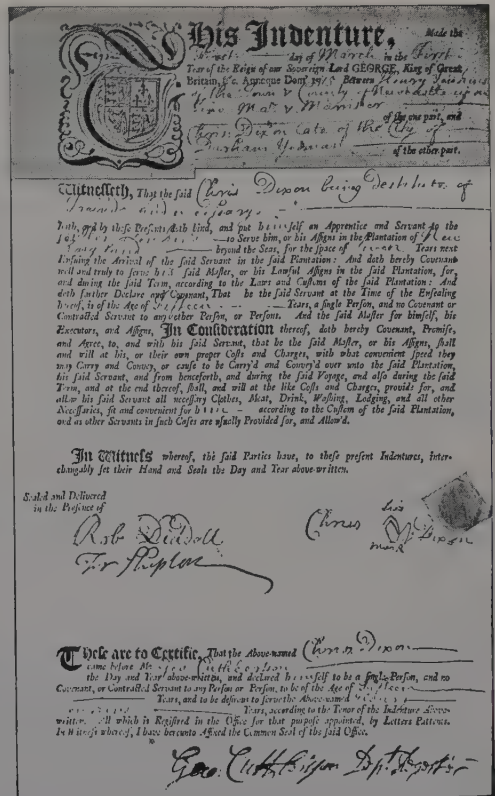 This Indenture, Made the
First day of March in the First
Year of the Reign of our Sovereign Lord GEORGE, King of Great
Britain, &c. Annoque Dom. 171 Between Henry
of the Town & County of
of the one part, and
Dixon late of the City of
Durham Yeoman
of the other part.
Witnesseth, That the said Chris Dixon being destitute of
friends and
hath, and by these Presents doth bind, and put himself an Apprentice and Servant to the
to Serve him, or his Assigns in the Plantation of
beyond the Seas, for the space of Years next
Ensuing the Arrival of the said Servant in the said Plantation: And doth hereby Covenant
well and truly to serve his said Master, or his Lawful Assigns in the said Plantation, for,
and during the said Term, according to the Laws and Customs of the said Plantation: And
doth further Declare and Covenant, That he the said Servant at the Time of the Ensealing
hereof, is of the Age of Years, a single Person, and no Covenant or
Contracted Servant to any other Person, or Persons. And the said Master for himself, his
Executors, and Assigns, In Consideration thereof, doth hereby Covenant, Promise,
and Agree, to, and with his said Servant, that he the said Master, or his Assigns, shall
and will at his, or their own proper Costs and Charges, with what convenient speed they
may Carry and Convey, or cause to be Carry'd and Convey'd over unto the said Plantation,
his said Servant, and from henceforth, and during the said Voyage, and also during the said
Term, and at the end thereof, shall, and will at the like Costs and Charges, provide for, and
allow his said Servant all necessary Clothes, Meat, Drink, Washing, Lodging, and all other
Necessaries, fit and convenient for him according to the Custom of the said Plantation,
and as other Servants in such Cases are usually Provided for, and Allow'd.
In Witness whereof, the said Parties have, to these present Indentures, inter-
changably set their Hand and Seals the Day and Year above-written.
Sealed and Delivered
in the Presence of
Rob Liddell
Chris his Dixon
mark
These are to Certifie, That the Above-named Chris Dixon
came before Me Geo Cuthbertson
the Day and Year above-written, and declared himself to be a single Person, and no
Covenant, or Contracted Servant to any Person or Person, to be of the Age of
Years, and to be desirous to serve the Above-named
Years, according to the Tenor of the Indenture Above-
written. All which is Registred in the Office for that purpose appointed, by Letters Pattents.
In Witness whereof, I have hereunto Affixed the Common Seal of the said Office.
Geo: Cuthbertson Dept. Register